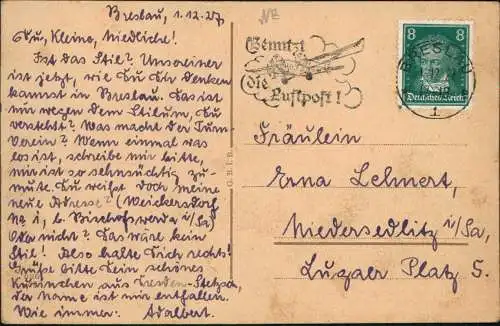 Breslau, 1.12.27.
Du, Kleine, Niedliche!
Ist das Stil? Unsereiner
ist jetzt, wie Du Dir denken
kannst in Breslau. Das ist
nur wegen dem Stilum, Du
verstehst? Was macht der Turn-
Verein? Wenn einmal was
los ist, schreibe mir bitte,
mir ist so sehnsüchtig zu-
mute. Du weißt doch meine
neue Adresse? (Weickersdorf
No 1, b. Bischofswerda i/Sa)
Oder nicht? Das wäre kein
Stil! Also halte Dich rechts!
Grüße bitte Dein schönes
aus Dresden-
der Name ist mir entfallen.
Wie immer: Adalbert.
G.H.i.B.
Benutzt
die
Luftpost!
BRESLAU
1
8 8
Deutsches Reich
Fräulein
Erna Lehnert,
Niedersedlitz i/Sa,
Lugaer Platz 5.